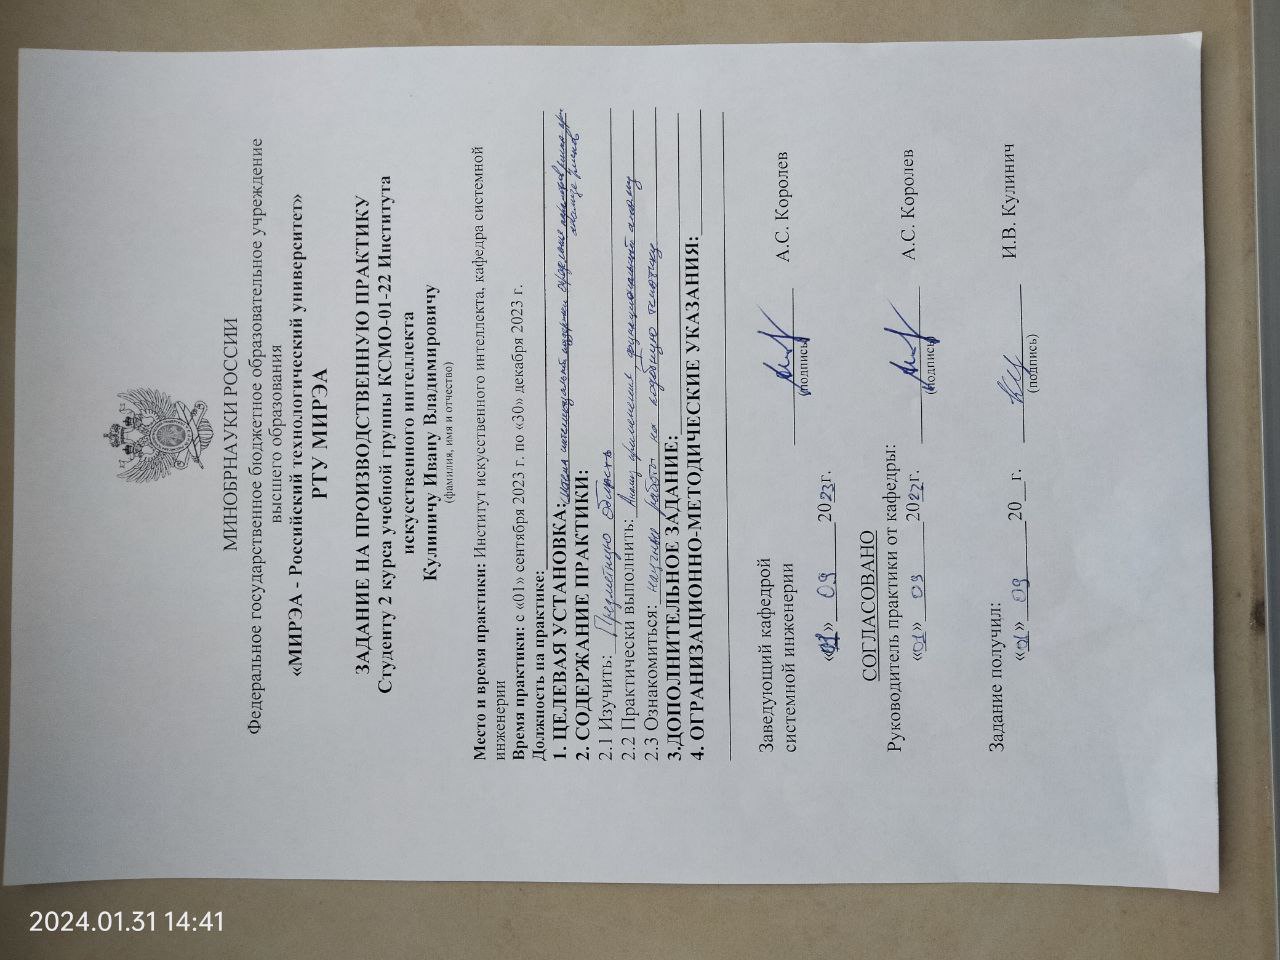 МИНОБРНАУКИ РОССИИ
Федеральное государственное бюджетное образовательное учреждение
высшего образования
«МИРЭА - Российский технологический университет»
РТУ МИРЭА
ЗАДАНИЕ НА ПРОИЗВОДСТВЕННУЮ ПРАКТИКУ
Студенту 2 курса учебной группы КСМО-01-22 Института
искусственного интеллекта
Кулиничу Ивану Владимировичу
(фамилия, имя и отчество)
Место и время практики: Институт искусственного интеллекта, кафедра системной
инженерии
Время практики: с «01» сентября 2023 г. по «30» декабря 2023 г.
Должность на практике:
1. ЦЕЛЕВАЯ УСТАНОВКА:
2. СОДЕРЖАНИЕ ПРАКТИКИ:
2.1 Изучить: Предметную область
2.2 Практически выполнить: Анализ применения функциональный анализ
2.3 Ознакомиться: научные работы на подобную тематику
3.ДОПОЛНИТЕЛЬНОЕ ЗАДАНИЕ:
4. ОГРАНИЗАЦИОННО-МЕТОДИЧЕСКИЕ УКАЗАНИЯ:
Заведующий кафедрой
системной инженерии А.С. Королев
(подпись)
«01» 09 2023г.
СОГЛАСОВАНО
Руководитель практики от кафедры:
«01» 09 2023г. А.С. Королев
(подпись)
Задание получил:
«01» 09 20 г. И.В. Кулинич
(подпись)
2024.01.31 14:41